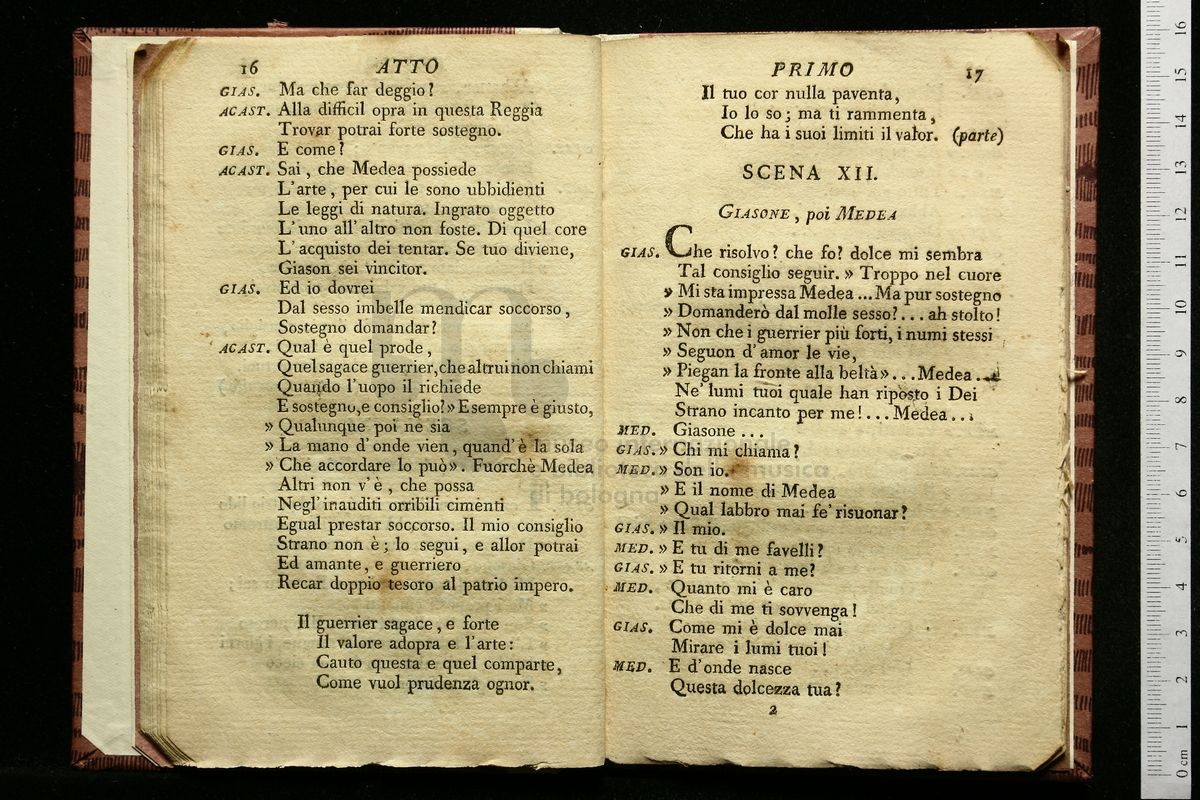 16 ATTO
GIAS. Ma che far deggio?
ACAST. Alla difficil opra in questa Reggia
Trovar potrai forte sostegno.
GIAS. E come?
ACAST. Sai, che Medea possiede
L'arte, per cui le sono ubbidienti
Le leggi di natura. Ingrato oggetto
L'uno all'altro non foste. Di quel core
L'acquisto dei tentar. Se tuo diviene,
Giason sei vincitor.
GIAS. Ed io dovrei
Dal sesso imbelle mendicar soccorso,
Sostegno domandar?
ACAST. Qual è quel prode,
Quel sagace guerrier, che altrui non chiami
Quando l'uopo il richiede
E sostegno, e consiglio? » E sempre è giusto,
» Qualunque poi ne sia
» La mano d'onde vien, quand'è la sola
» Che accordare lo può». Fuorchè Medea
Altri non v'è, che possa
Negl'inauditi orribili cimenti
Egual prestar soccorso. Il mio consiglio
Strano non è; lo segui, e allor potrai
Ed amante, e guerriero
Recar doppio tesoro al patrio impero.
Il guerrier sagace, e forte
Il valore adopra e l'arte:
Cauto questa e quel comparte,
Come vuol prudenza ognor.
PRIMO 17
Il tuo cor nulla paventa,
Io lo so; ma ti rammenta,
Che ha i suoi limiti il valor. (parte)
SCENA XII.
GIASONE, poi MEDEA
GIAS. Che risolvo? che fo? dolce mi sembra
Tal consiglio seguir. » Troppo nel cuore
» Mi sta impressa Medea ... Ma pur sostegno
» Domanderò dal molle sesso? ... ah stolto!
» Non che i guerrier più forti, i numi stessi
» Seguon d'amor le vie,
» Piegan la fronte alla beltà» ... Medea ...
Ne' lumi tuoi quale han riposto i Dei
Strano incanto per me! ... Medea ...
MED. Giasone ...
GIAS. » Chi mi chiama?
MED. » Son io.
» E il nome di Medea
» Qual labbro mai fe' risuonar?
GIAS. » Il mio.
MED. » E tu di me favelli?
GIAS. » E tu ritorni a me?
MED. Quanto mi è caro
Che di me ti sovvenga!
GIAS. Come mi è dolce mai
Mirare i lumi tuoi!
MED. E d'onde nasce
Questa dolcezza tua?
2
museo internazionale
e biblioteca della musica
di bologna
0 cm 1 2 3 4 5 6 7 8 9 10 11 12 13 14 15 16